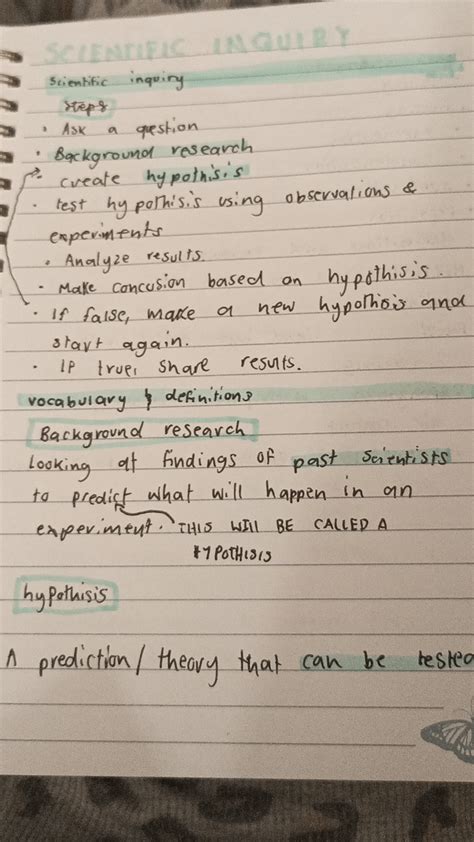 SCIENTIFIC INQUIRY
Scientific inquiry
Steps
• Ask a qestion
• Background research
• create hypothisis
• test hypothisis using observations &
experiments
• Analyze results.
• Make concusion based on hypothisis.
• If false, make a new hypothisis and
start again.
• If true, share results.
vocabulary & definitions
Background research
looking at findings of past scientists
to predict what will happen in an
experiment. THIS WILL BE CALLED A
HYPOTHISIS
hypothisis
A prediction/theory that can be tested